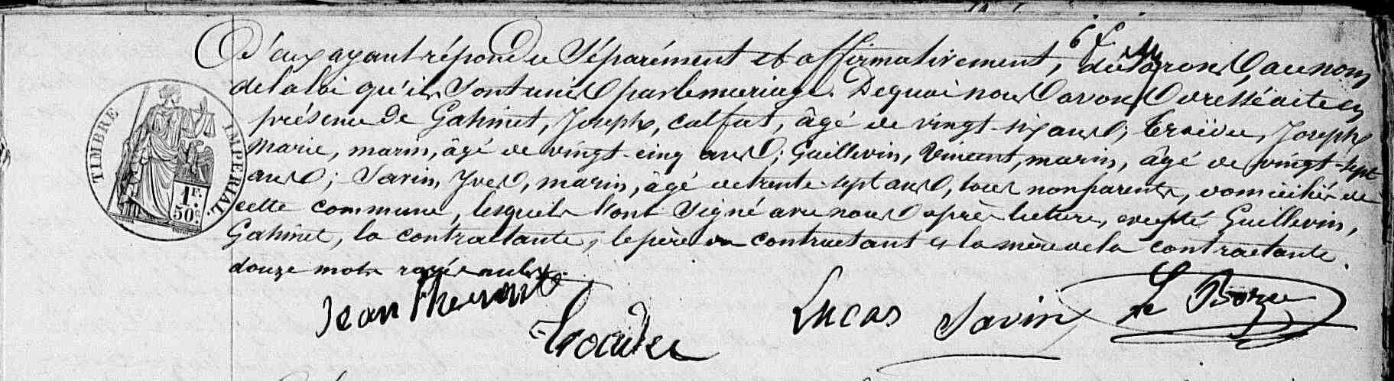 d'eux ayant répondu séparément et affirmativement, déclarons au nom
de la loi qu'ils sont unis par le mariage. De quoi nous avons dressé acte en
présence de Gahinet, Joseph, calfat, âgé de vingt-six ans; Joseph
Marie, marin, âgé de vingt-cinq ans; Guillevin, Vincent, marin, âgé de vingt-sept
ans; Savin, Yves, marin, âgé de trente-sept ans, tous non parents, domiciliés de
cette commune, lesquels ont signé avec nous après lecture, excepté Guillevin,
Gahinet, la contractante, le père du contractant et la mère de la contractante.
douze mots rayés nuls.
TIMBRE IMPERIAL.
1F.
50c.
Jean
Lucas
Savin
Le